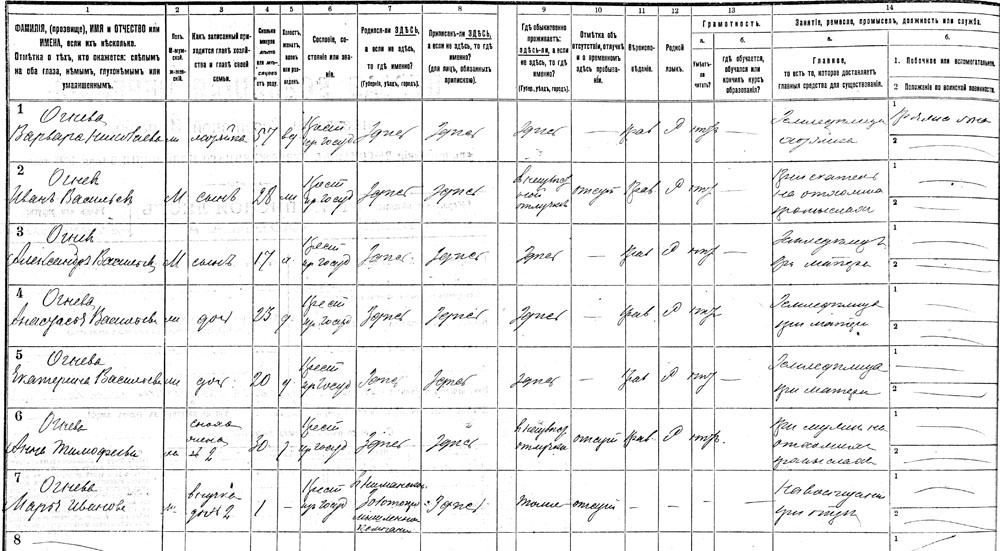 1 2 3 4 5 6 7 8 9 10 11 12 13 14
ФАМИЛІЯ, (прозвище), ИМЯ и ОТЧЕСТВО или
ИМЕНА, если ихъ нѣсколько.
Отмѣтка о тѣхъ, кто окажется: слѣпымъ
на оба глаза, нѣмымъ, глухонѣмымъ или
умалишеннымъ.
Полъ.
М-муж-
ской.
Ж-жен-
скій.
Какъ записанный при-
ходится главѣ хозяй-
ства и главѣ своей
семьи.
Сколько
минуло
лѣтъ
или мѣ-
сяцевъ
отъ роду.
Холостъ,
женатъ,
вдовъ
или раз-
веденъ.
Сословіе, со-
стояніе или зва-
ніе.
Родился-ли ЗДѢСЬ,
а если не здѣсь,
то гдѣ именно?
(Губернія, уѣздъ, городъ).
Приписанъ-ли ЗДѢСЬ,
а если не здѣсь, то гдѣ
именно?
(для лицъ, обязанныхъ
припискою).
Гдѣ обыкновенно
проживаетъ:
ЗДѢСЬ-ли, а если
не здѣсь, то гдѣ
именно?
(Губер., уѣздъ, городъ).
Отмѣтка объ
отсутствіи, отлучкѣ
и о временномъ
здѣсь пребыва-
ніи.
Вѣроиспо-
вѣданіе.
Родной
языкъ.
Грамотность.
а.
Умѣетъ-
ли
читать?
б.
гдѣ обучается,
обучался или
кончилъ курсъ
образованія?
Занятіе, ремесло, промыселъ, должность или служба.
а.
Главное,
то есть то, которое доставляетъ
главныя средства для существованія.
б.
1. Побочное или вспомогательное.
2 Положеніе по воинской повинности.
1 Огнева
Варвара Николаева хозяйка 57 вд Крест
изъ госуд Здѣсь Здѣсь Здѣсь — Прав Р — Земледѣлица
хозяйка
1
2
2 Огнев
Иванъ Васильевъ М сынъ 28 ж Крест
изъ госуд Здѣсь Здѣсь отлучкѣ отсут Прав. Р —
1
2
3 Огнев
Александръ Васильев М сынъ 17 х Крест
изъ госуд Здѣсь Здѣсь Здѣсь — Прав Р — Земледѣлецъ
при матери
1
2
4 Огнева
Анастасья Васильева ж доч 23 д Крест
изъ госуд Здѣсь Здѣсь Здѣсь — Прав. Р — Земледѣлица
при матери
1
2
5 Огнева
Екатерина Васильева ж доч 20 д Крест
изъ госуд Здѣсь Здѣсь Здѣсь — Прав Р — Земледѣлица
при матери
1
2
6 Огнева
Анна Тимофеева ж сноха
члена
№ 2 30 з Крест
изъ госуд Здѣсь Здѣсь отлучкѣ отсут Прав. Р — при мужѣ на
1
2
7 Огнева
Марья Иванова ж внучка
доч № 2 1 — Крест
изъ госуд Здѣсь Тоже отсут — — — —
при отцѣ
1
2
8 1